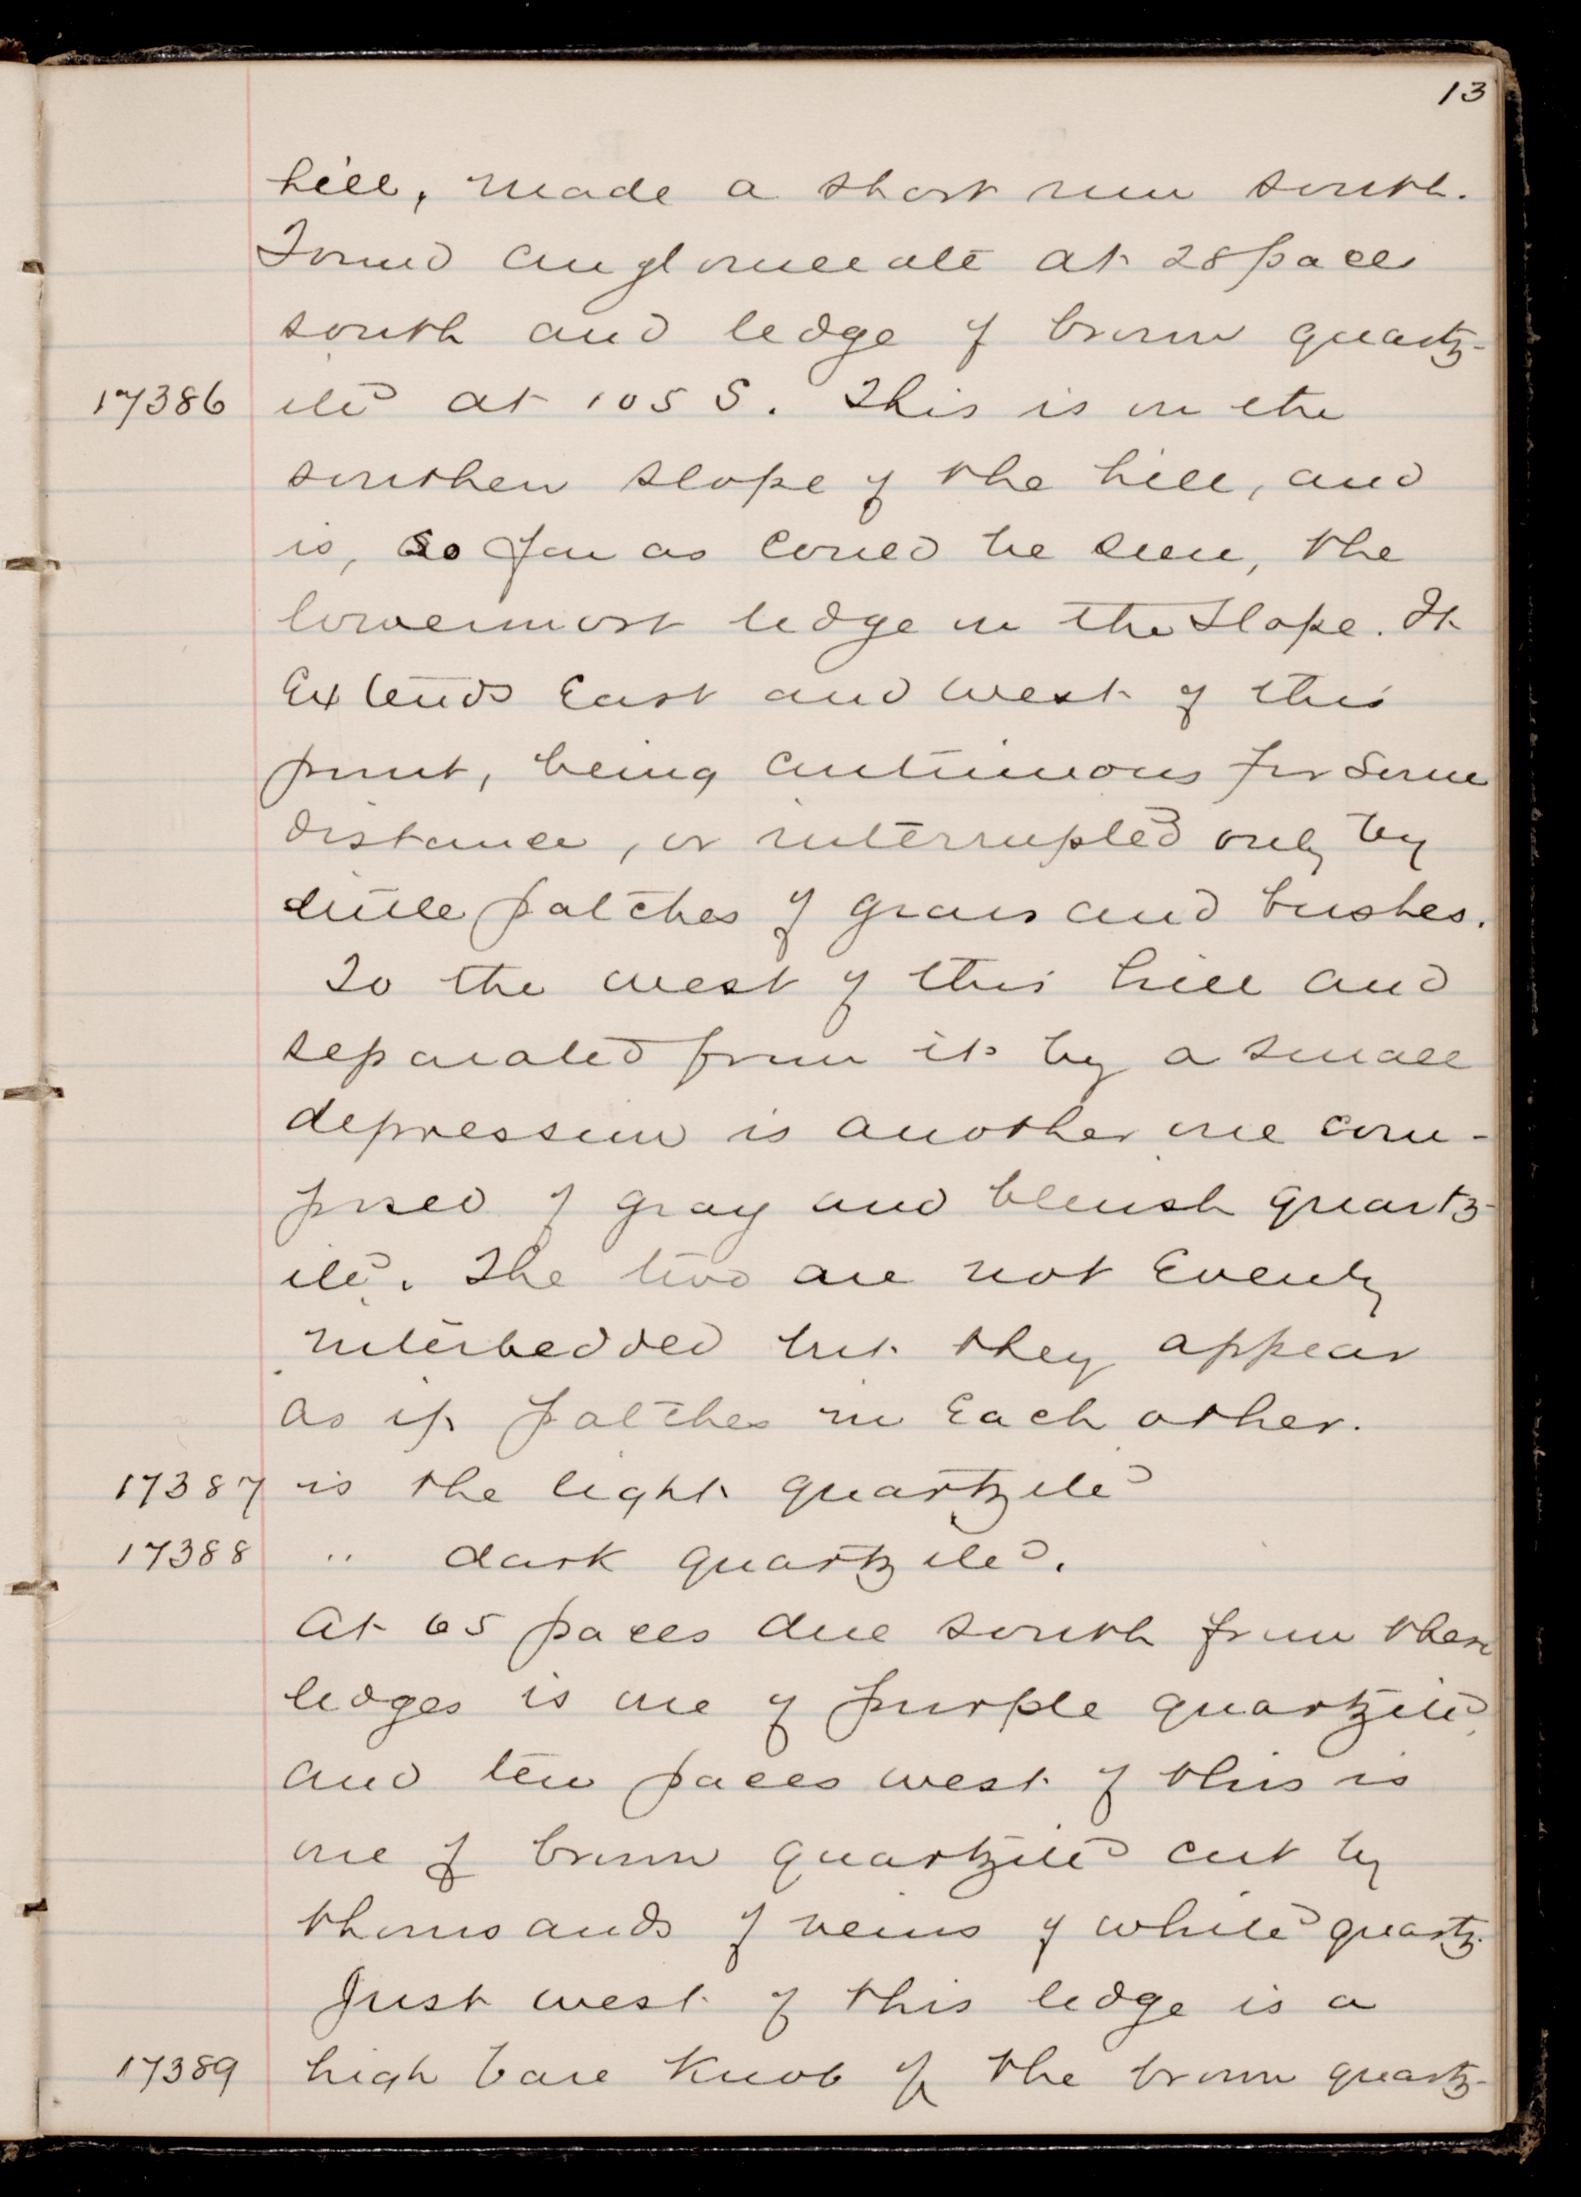 13
hill, made a short run south.
Found conglomerate at 28 paces
south and ledge of brown quartz-
17386 ite at 105 S. This is on the
southern slope of the hill, and
is, so far as could be seen, the
lowermost ledge on the slope. It
Extends East and west of this
point, being continuous for some
distance, or interrupted only by
little patches of grass and bushes.
To the west of this hill and
separated from it by a small
depression is another one com-
posed of gray and bluish quartz-
ite. The two are not Evenly
interbedded but they appear
as if patches in Each other.
17387 is the light quartzite
17388 " dark quartzite.
At 65 paces due south from these
ledges is one of purple quartzite,
and ten paces west of this is
one of brown quartzite cut by
thousands of veins of white quartz.
Just west of this ledge is a
17389 high bare Knob of the brown quartz-